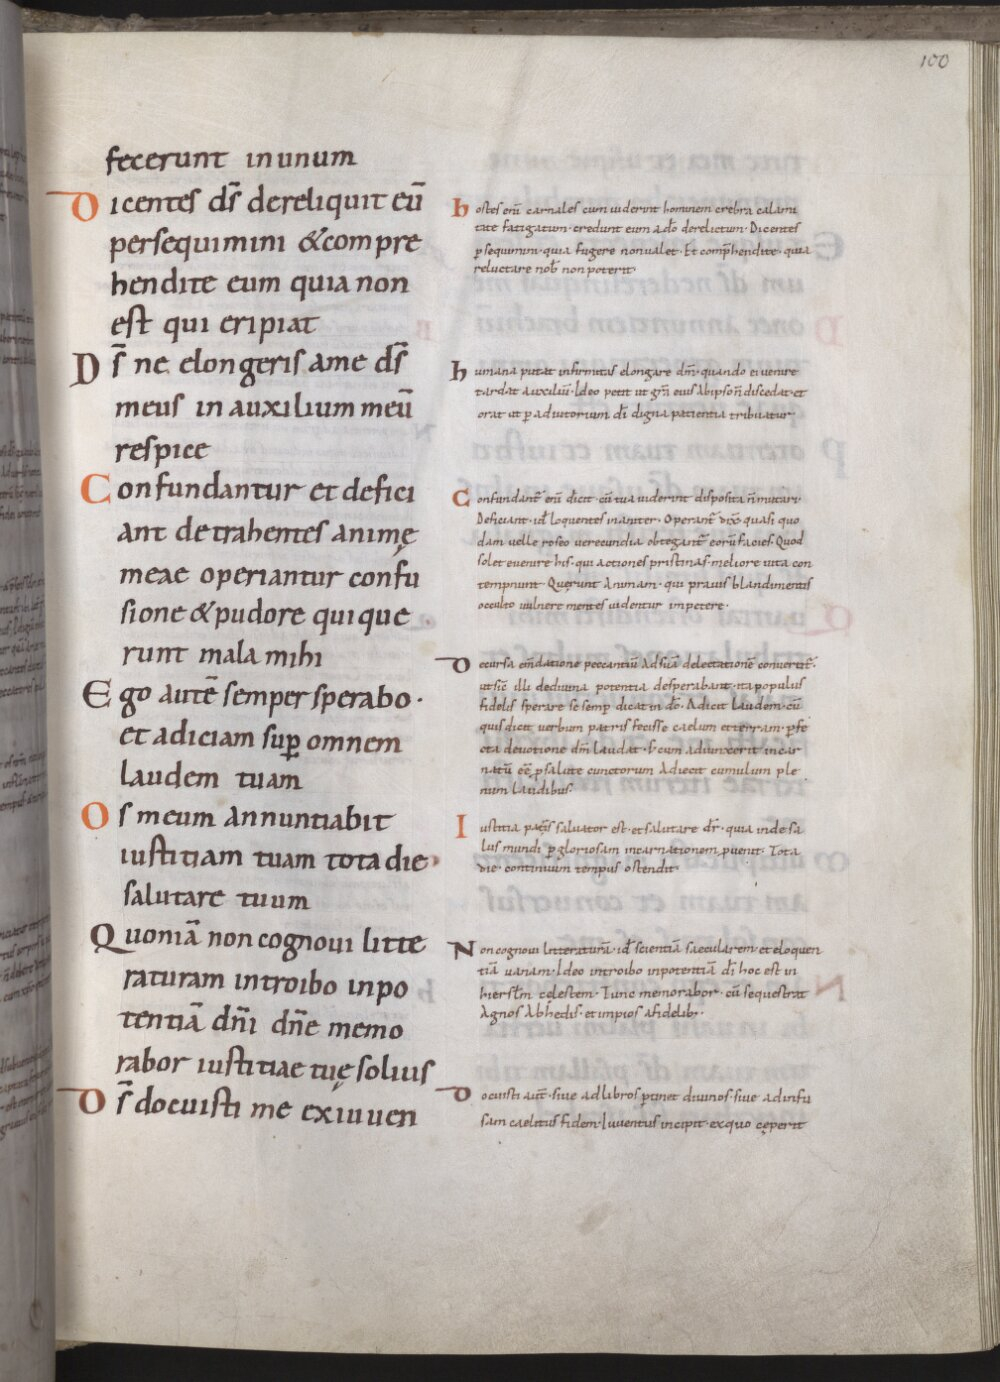 100
fecerunt in unum
Dicentes dſ̄ dereliquit eū
persequimini &compre
hendite eum quia non
eſt qui eripiat
Dſ̄ ne elongeris ame dſ̄
meus in auxilium meū
respice
Confundantur et defici
ant detrahentes animę
meae operiantur confu
sione &pudore qui que
runt mala mihi
Ego autē semper sperabo·
et adiciam sup̄ omnem
laudem tuam
Os meum annuntiabit
iuſtitiam tuam tota die
salutare tuum
Quoniā non cognovi litte
raturam introibo inpo
tentiā dn̄i dn̄e memo
rabor iuſtitiae tuę solius
Dſ̄ docuiſti me exiuven
hostes enī carnales cum viderint hominem crebra calami
tate fatigatum· credunt eum a dō derelictum· Dicentes
p̱sequimini· quia fugere non valet· Et comp̄hendite· quia
reluctare nob̄ non poterit·
humana putat infirmitas elongare dm̄· quando ei venire
tardat auxiliū· Ideo petit ut gr̄a eius abipso n̄ discedat· et
orat ut p̱ adiutorium dī digna patientia tribuatur
Confundant᷑ enī dicit· cū tua viderint disposita n̄ mutari·
Deficiant· id̄ loquentes inaniter· Operant᷑ dix̄ quasi quo
dam velle roseo verecundia obtegant᷑ eorū facies· Quod
solet evenire his· qui actiones pristinas meliore vita con
tempnunt· Querunt animam· qui pravis blandimentis
occulto vulnere mentes videntur impetere·
Decursa em̄datione peccantiū ad suā delectationē convertit᷑·
ut sic illi dedivina potentia desperabant· ita populus
fidelis sperare se semp̱ dicat in dō· Adicit laudem· cū
quis dicit verbum patris fecisse caelum et terram· p̱fe
cta devotione dm̄ laudat· & cum adiunxerit incar
natū eē p̱ salute cunctorum adiecit cumulum ple
num laudibus·
Iustitia pat̄s salvator est· et salutare dr̄· quia inde sa
lus mundi p̱ gloriosam incarnationem p̱venit· Tota
die· continuum tempus ostendit·
Non cognovi litteraturā· id̄ scientiā saecularem· et eloquen
tiā vanam· Ideo introibo inpotentiā dī hoc est in
hierslm̄ celestem· Tunc memorabor· cū sequestrat
agnos abhedis· et impios a fidelib·
Docuisti aut̄· sive ad libros p̱tinet divinos· sive ad infu
sam caelitus fidem· Iuventus incipit· ex quo cęperit